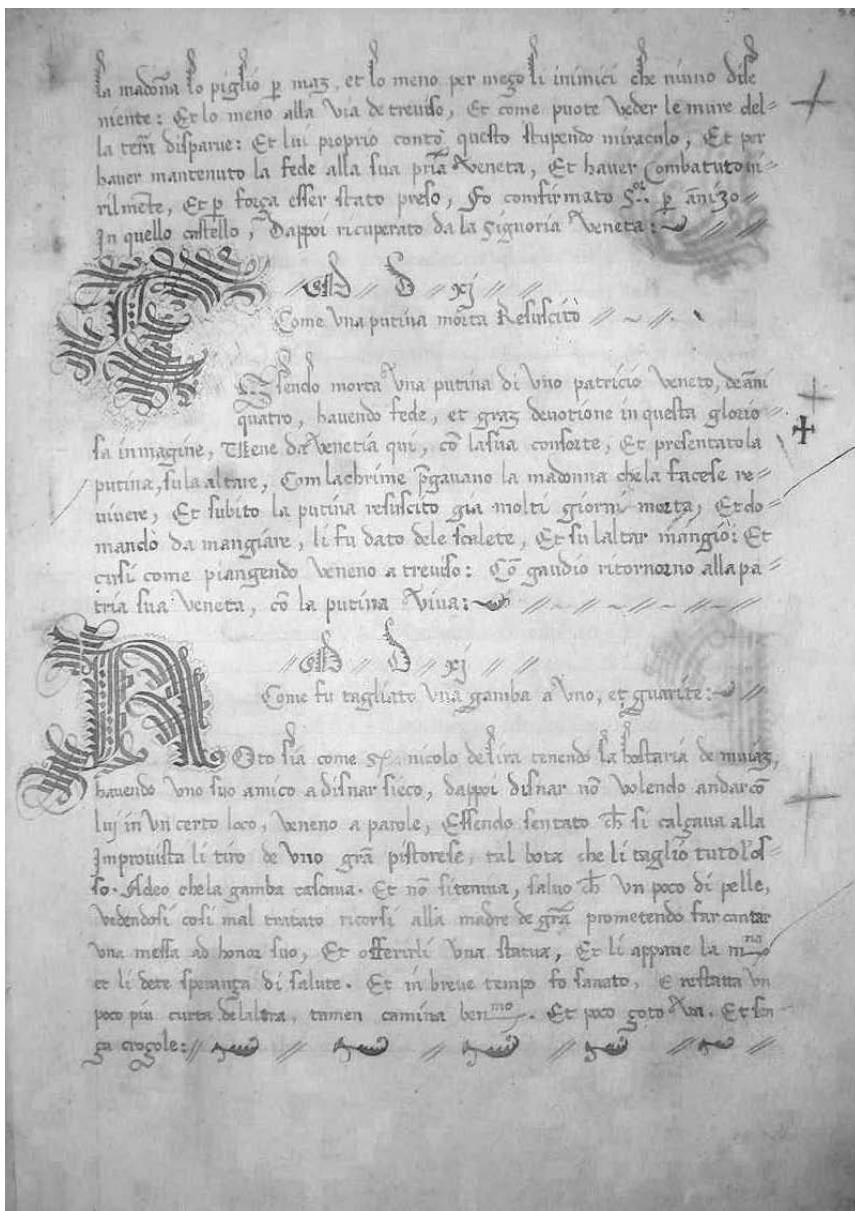 la madoña lo piglió p maz, et lo meno per mezo li inimici che niuno dise
niente: Et lo meno alla via de treviso, Et come puote veder le mure del=
la terra disparve: Et lui proprio contò questo stupendo miraculo, Et per
haver mantenuto la fede alla sua pria veneta, Et haver Combatuto vi
rilmete, Et p força esser stato preso, Fo comfirmato p añi 30
In quello castello, Dappoi ricuperato da la Signoria veneta:
M D xj
Come vna putina morta Resuscitò
Essendo morta vna putina di vno patricio veneto, de añi
quatro, havendo fede, et graz devotione in questa glorio=
sa inmagine, Viene da venetia qui, cõ la sua consorte, Et presentato la
putina, sula altare, Com lachrime pgavano la madonna che la facese re=
vivere, Et subito la putina resuscito gia molti giorni morta, Et do
mandò da mangiare, li fu dato dele scalete, Et su laltar mangiò: Et
cusi come piangendo veneno a treviso: Cõ gaudio ritornorno alla pa=
tria sua veneta, cõ la putina viva:
M D xj
Come fu tagliato vna gamba a vno, et guarite:
NOto sia come nicolo de lira tenendo la hostaria de muiaz,
havendo vno suo amico a disnar sieco, dappoi disnar nõ volendo andar cõ
lui in vn certo loco, veneno a parole, Essendo sentato ch si calçava alla
Improvista li tiro de vno grã pistorese, tal bota che li taglio tuto l'os=
so. Adeo che la gamba cascava. Et nõ si teniva, salvo ch vn poco di pelle,
vedendosi cosi mal tratato ricorsi alla madre de grã prometendo far cantar
vna messa ad honor suo, Et offerirli vna statua, Et li apparve la mna
et li dete sperança di salute. Et in breve tempo fo sanato, E restatta vn
poco piu curta de laltra, tamen camina benmo. Et poco goto va. Et sen
ça crogole: